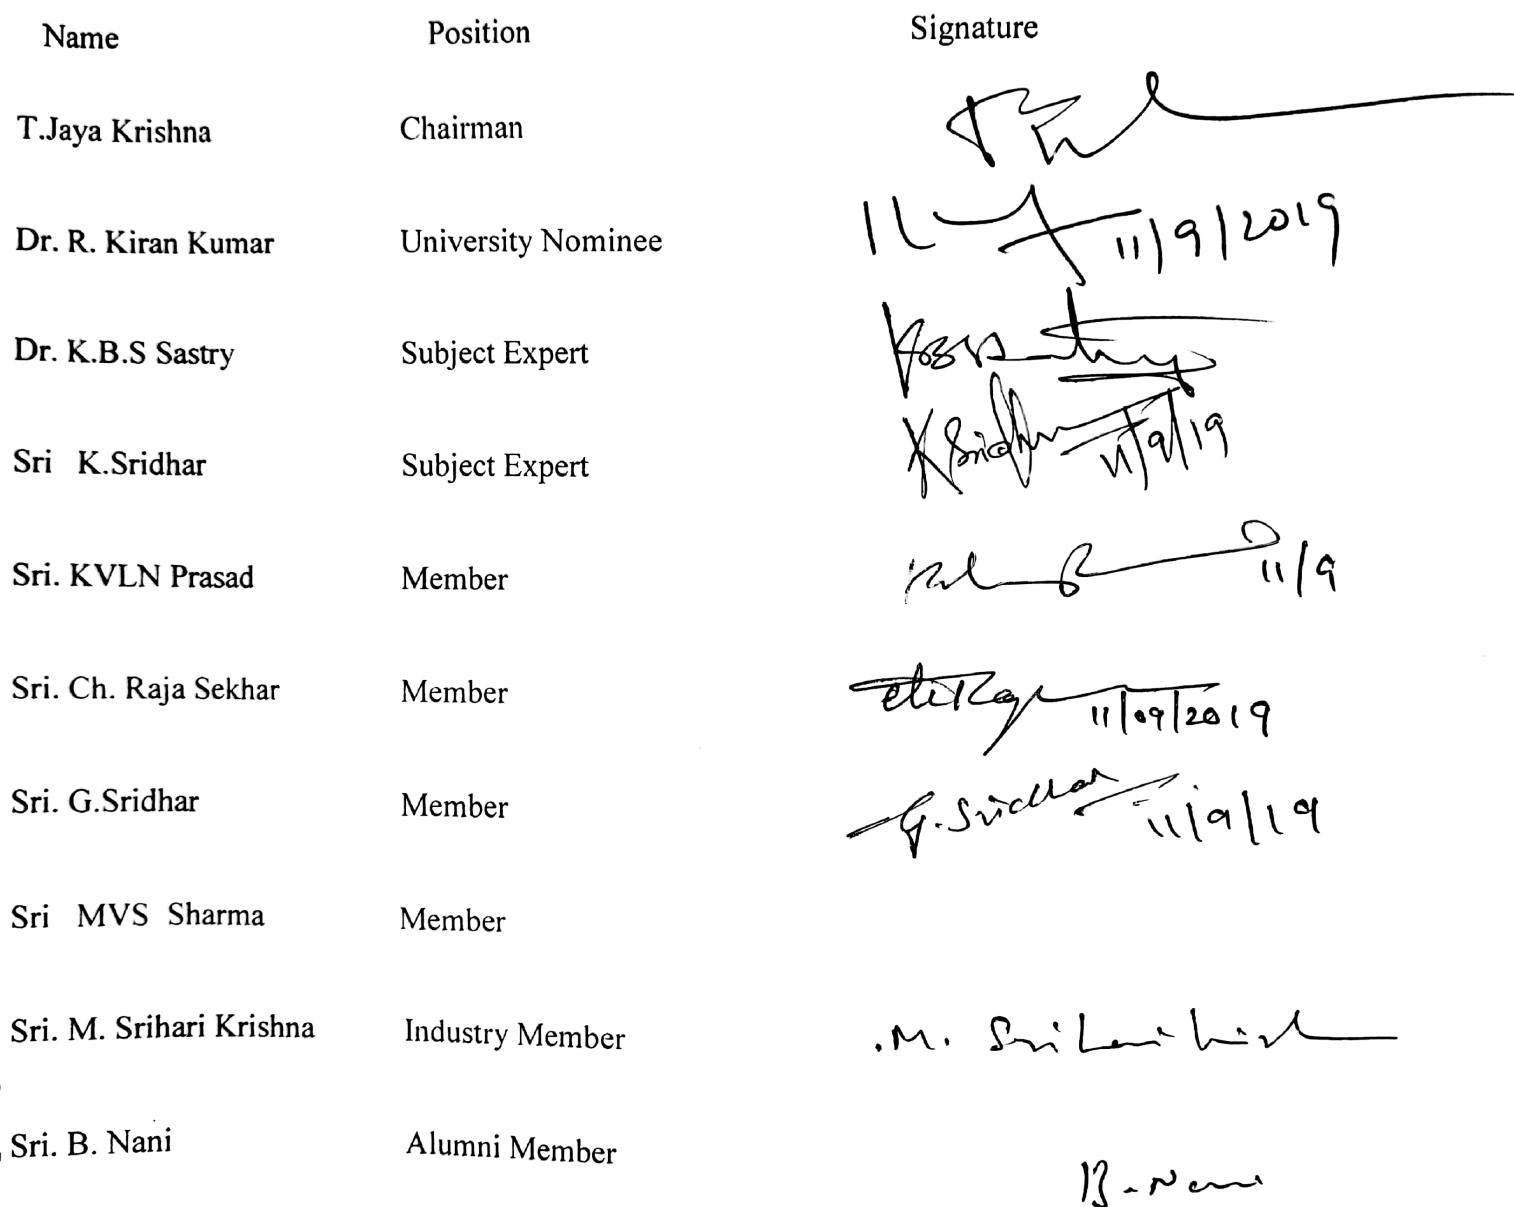 Name Position Signature
T.Jaya Krishna Chairman
Dr. R. Kiran Kumar University Nominee 11/9/2019
Dr. K.B.S Sastry Subject Expert
Sri K.Sridhar Subject Expert K Sridhar 11/9/19
Sri. KVLN Prasad Member 11/9
Sri. Ch. Raja Sekhar Member 11/09/2019
Sri. G.Sridhar Member G. Sridhar 11/9/19
Sri MVS Sharma Member
Sri. M. Srihari Krishna Industry Member .M.
Sri. B. Nani Alumni Member B. Nani